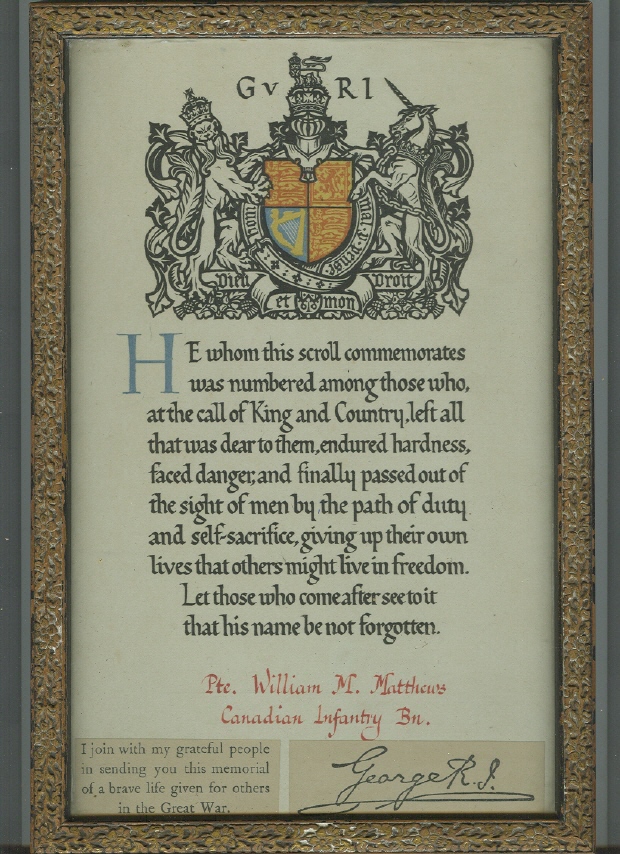 GV RI
Honi
mal·y·pense
Dieu
et mon
Droit
HE whom this scroll commemorates
was numbered among those who,
at the call of King and Country, left all
that was dear to them, endured hardness,
faced danger, and finally passed out of
the sight of men by the path of duty
and self-sacrifice, giving up their own
lives that others might live in freedom.
Let those who come after see to it
that his name be not forgotten.
Pte. William M. Matthews
Canadian Infantry Bn.
I join with my grateful people
in sending you this memorial
of a brave life given for others
in the Great War.
George R.I.